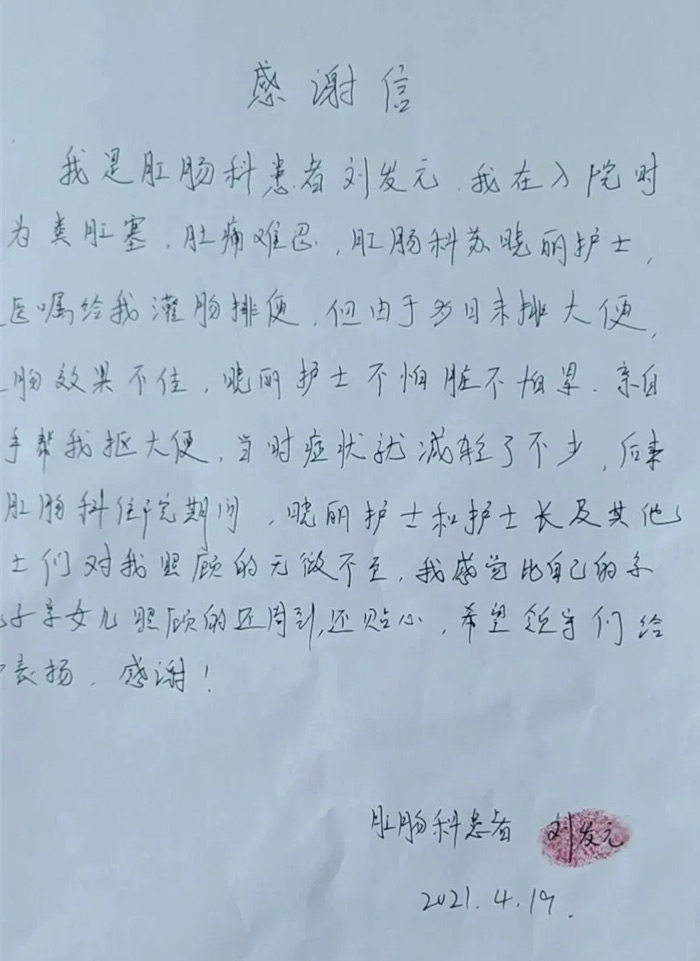 感谢信
我是肛肠科患者刘发元.我在入院时
为粪肛塞,肚痛难忍,肛肠科苏晓丽护士,
医嘱给我灌肠排便,但由于多日未排大便,
肠效果不佳,晓丽护士不怕脏不怕累.亲自
手帮我抠大便,当时症状就减轻了不少,后来
肛肠科住院期间,晓丽护士和护士长及其他
士们对我照顾的无微不至,我感觉比自己的亲
子亲女儿照顾的还周到,还贴心,希望领导们给
表扬.感谢!
肛肠科患者 刘发元
2021.4.19.